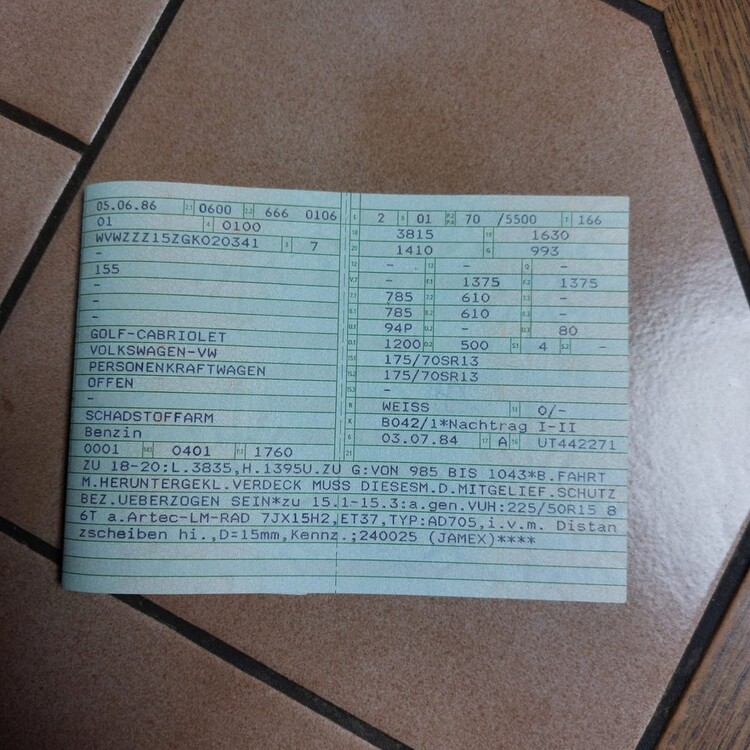 05.06.86 2.1 0600 2.2 666 0106
01 4 0100
WVWZZZ15ZGK020341 3 7
-
155
-
-
-
GOLF-CABRIOLET
VOLKSWAGEN-VW
PERSONENKRAFTWAGEN
OFFEN
-
SCHADSTOFFARM
Benzin
0001 0401 1760
L 2 9 01 P.2 P.4 70 /5500 T 166
18 3815 19 1630
20 1410 G 993
12 - 13 - Q -
V.7 - F.1 1375 F.2 1375
7.1 785 7.2 610 7.3 -
8.1 785 8.2 610 8.3 -
U.1 94P U.2 - U.3 80
O.1 1200 O.2 500 S.1 4 S.2 -
15.1 175/70SR13
15.2 175/70SR13
15.3 -
R WEISS 11 0/-
K B042/1*Nachtrag I-II
6 03.07.84 17 A 16 UT442271
21
ZU 18-20:L.3835,H.1395U.ZU G:VON 985 BIS 1043*B.FAHRT
M.HERUNTERGEKL.VERDECK MUSS DIESESM.D.MITGELIEF.SCHUTZ
BEZ.UEBERZOGEN SEIN*zu 15.1-15.3:a.gen.VUH:225/50R15 8
6T a.Artec-LM-RAD 7JX15H2,ET37,TYP:AD705,i.v.m. Distan
zscheiben hi.,D=15mm,Kennz.;240025 (JAMEX)****